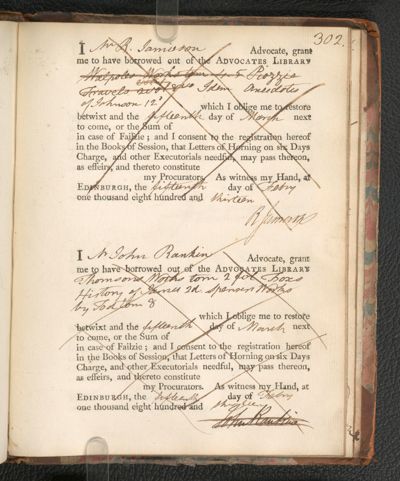 302.
I Mr R. Jamieson Advocate, grant
me to have borrowed out of the ADVOCATES LIBRARY
Walpoles Works tom 4 & 5 Piozzis
Travels 2 vols 8vo Idem Anecdotes
of Johnson 12o
which I oblige me to restore
betwixt and the fifteenth day of March next
to come, or the Sum of
in case of Failzie; and I consent to the registration hereof
in the Books of Session, that Letters of Horning on six Days
Charge, and other Executorials needful, may pass thereon,
as effeirs, and thereto constitute
my Procurators. As witness my Hand, at
EDINBURGH, the fifteenth day of Febry
one thousand eight hundred and thirteen
R Jamieson
I Mr John Rankin Advocate, grant
me to have borrowed out of the ADVOCATES LIBRARY
Thomsons Works tom 2 Foxs
History of James 2d Spensers Works
by Todd tom 8
which I oblige me to restore
betwixt and the fifteenth day of March next
to come, or the Sum of
in case of Failzie; and I consent to the registration hereof
in the Books of Session, that Letters of Horning on six Days
Charge, and other Executorials needful, may pass thereon,
as effeirs, and thereto constitute
my Procurators. As witness my Hand, at
EDINBURGH, the fifteenth day of Febry
one thousand eight hundred and thirteen
John Rankin